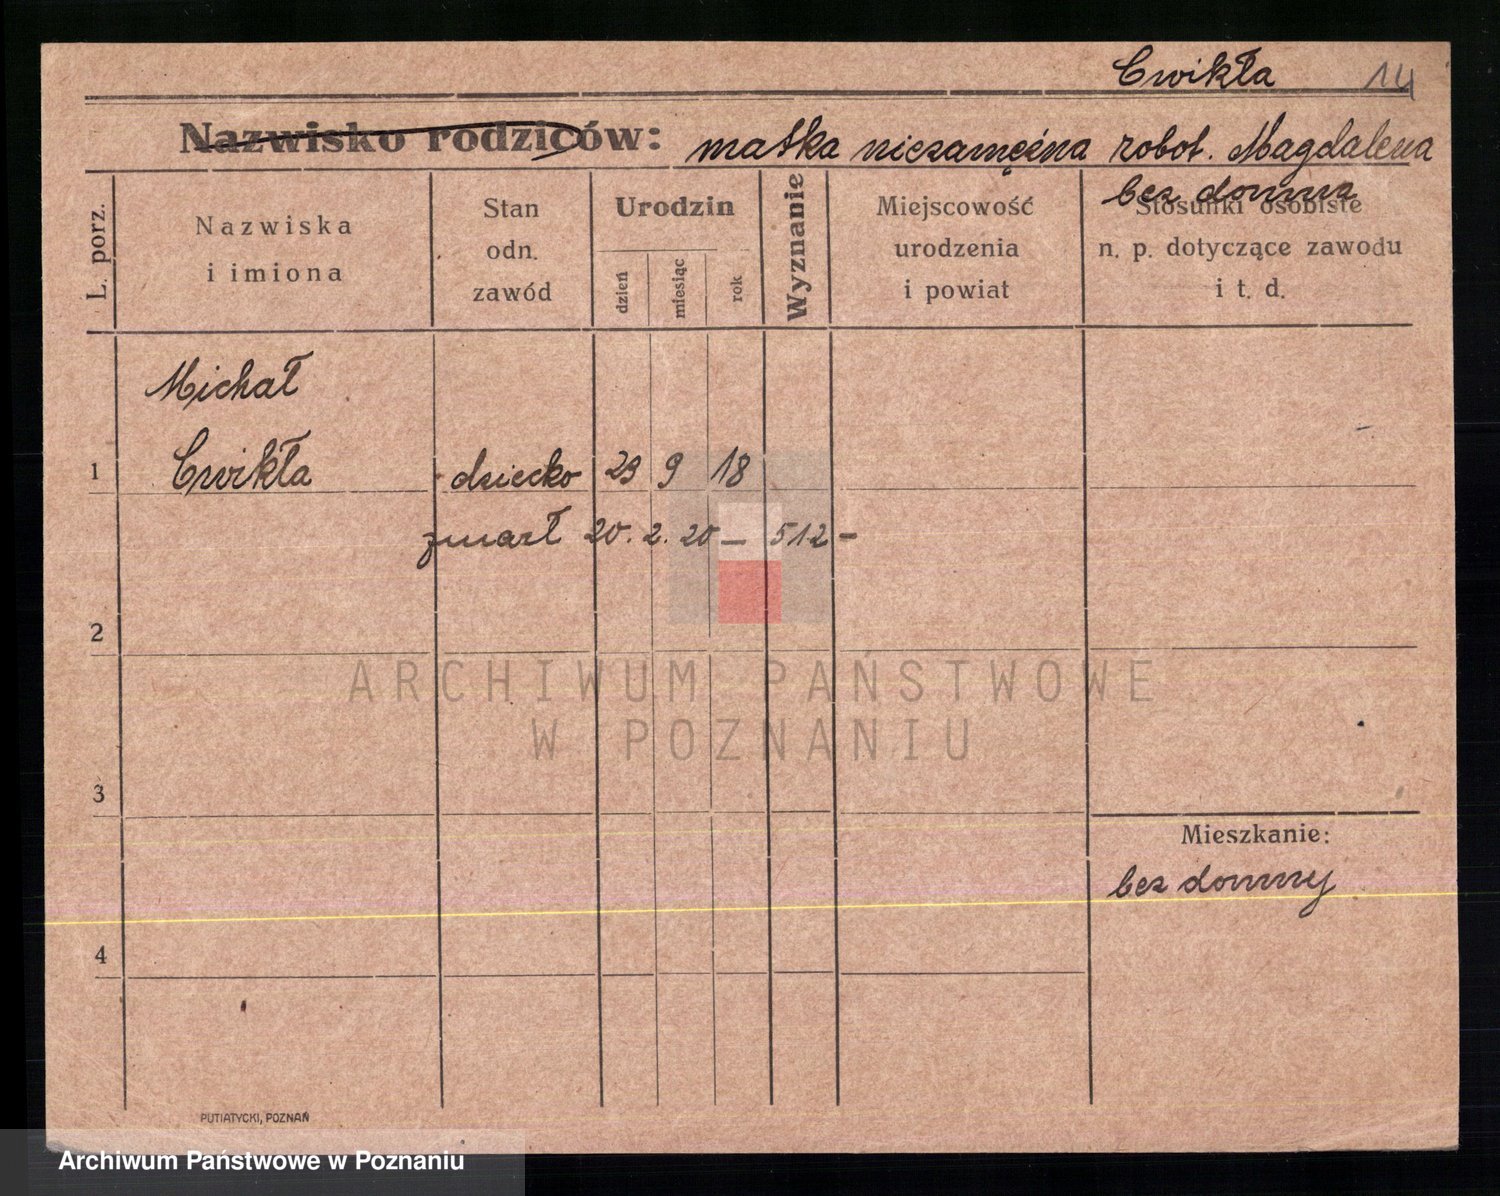 Cwikła 14
Nazwisko rodziców: matka niezamężna robot. Magdalena
bez domna
L. porz.
Nazwiska
i imiona
Stan
odn.
zawód
Urodzin
dzień
miesiąc
rok
Wyznanie
Miejscowość
urodzenia
i powiat
Stosunki osobiste
n. p. dotyczące zawodu
i t. d.
Michał
1 Cwikła dziecko 29 9 18
zmarł 20. 2. 20 – 512 –
2
3
Mieszkanie:
bez domny
4
PUTIATYCKI, POZNAŃ
ARCHIWUM PAŃSTWOWE
W POZNANIU
Archiwum Państwowe w Poznaniu